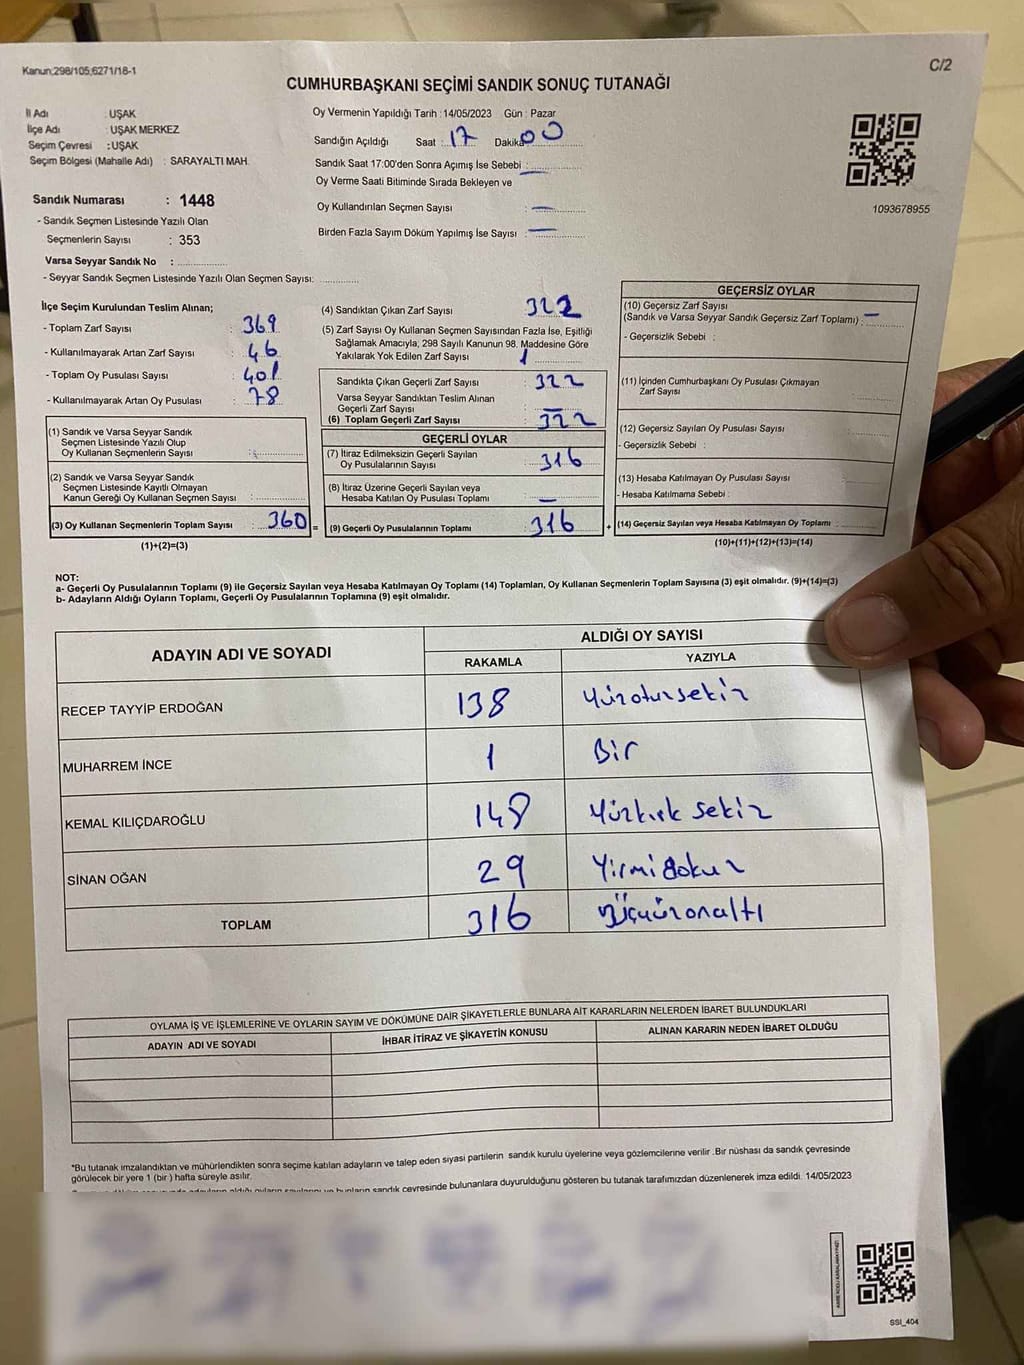 Kanun;298/105;6271/18-1
C/2
CUMHURBAŞKANI SEÇİMİ SANDIK SONUÇ TUTANAĞI
İl Adı : UŞAK
İlçe Adı : UŞAK MERKEZ
Seçim Çevresi : UŞAK
Seçim Bölgesi (Mahalle Adı) : SARAYALTI MAH.
Oy Vermenin Yapıldığı Tarih : 14/05/2023 Gün : Pazar
Sandığın Açıldığı Saat : 17 Dakika 00
Sandık Saat 17:00'den Sonra Açımış İse Sebebi : —
Oy Verme Saati Bitiminde Sırada Bekleyen ve
Oy Kullandırılan Seçmen Sayısı : —
Birden Fazla Sayım Döküm Yapılmış İse Sayısı : —
1093678955
Sandık Numarası : 1448
- Sandık Seçmen Listesinde Yazılı Olan
Seçmenlerin Sayısı : 353
Varsa Seyyar Sandık No :
- Seyyar Sandık Seçmen Listesinde Yazılı Olan Seçmen Sayısı:
İlçe Seçim Kurulundan Teslim Alınan;
- Toplam Zarf Sayısı : 369
- Kullanılmayarak Artan Zarf Sayısı : 46
- Toplam Oy Pusulası Sayısı : 401
- Kullanılmayarak Artan Oy Pusulası : 78
(1) Sandık ve Varsa Seyyar Sandık
Seçmen Listesinde Yazılı Olup
Oy Kullanan Seçmenlerin Sayısı :
(2) Sandık ve Varsa Seyyar Sandık
Seçmen Listesinde Kayıtlı Olmayan
Kanun Gereği Oy Kullanan Seçmen Sayısı :
(3) Oy Kullanan Seçmenlerin Toplam Sayısı : 360 =
(1)+(2)=(3)
(4) Sandıktan Çıkan Zarf Sayısı : 322
(5) Zarf Sayısı Oy Kullanan Seçmen Sayısından Fazla İse, Eşitliği
Sağlamak Amacıyla; 298 Sayılı Kanunun 98. Maddesine Göre
Yakılarak Yok Edilen Zarf Sayısı : 1
Sandıkta Çıkan Geçerli Zarf Sayısı : 322
Varsa Seyyar Sandıktan Teslim Alınan
Geçerli Zarf Sayısı : —
(6) Toplam Geçerli Zarf Sayısı : 322
GEÇERLİ OYLAR
(7) İtiraz Edilmeksizin Geçerli Sayılan
Oy Pusulalarının Sayısı : 316
(8) İtiraz Üzerine Geçerli Sayılan veya
Hesaba Katılan Oy Pusulası Toplamı : —
(9) Geçerli Oy Pusulalarının Toplamı : 316 +
GEÇERSİZ OYLAR
(10) Geçersiz Zarf Sayısı
(Sandık ve Varsa Seyyar Sandık Geçersiz Zarf Toplamı) : —
- Geçersizlik Sebebi :
(11) İçinden Cumhurbaşkanı Oy Pusulası Çıkmayan
Zarf Sayısı :
(12) Geçersiz Sayılan Oy Pusulası Sayısı :
- Geçersizlik Sebebi :
(13) Hesaba Katılmayan Oy Pusulası Sayısı :
- Hesaba Katılmama Sebebi :
(14) Geçersiz Sayılan veya Hesaba Katılmayan Oy Toplamı :
(10)+(11)+(12)+(13)=(14)
NOT:
a- Geçerli Oy Pusulalarının Toplamı (9) ile Geçersiz Sayılan veya Hesaba Katılmayan Oy Toplamı (14) Toplamları, Oy Kullanan Seçmenlerin Toplam Sayısına (3) eşit olmalıdır. (9)+(14)=(3)
b- Adayların Aldığı Oyların Toplamı, Geçerli Oy Pusulalarının Toplamına (9) eşit olmalıdır.
ADAYIN ADI VE SOYADI
ALDIĞI OY SAYISI
RAKAMLA YAZIYLA
RECEP TAYYİP ERDOĞAN 138 Yüzotuzsekiz
MUHARREM İNCE 1 Bir
KEMAL KILIÇDAROĞLU 148 Yüzkırk sekiz
SİNAN OĞAN 29 Yirmidokuz
TOPLAM 316 Üçyüzonaltı
OYLAMA İŞ VE İŞLEMLERİNE VE OYLARIN SAYIM VE DÖKÜMÜNE DAİR ŞİKAYETLERLE BUNLARA AİT KARARLARIN NELERDEN İBARET BULUNDUKLARI
ADAYIN ADI VE SOYADI İHBAR İTİRAZ VE ŞİKAYETİN KONUSU ALINAN KARARIN NEDEN İBARET OLDUĞU
*Bu tutanak imzalandıktan ve mühürlendikten sonra seçime katılan adayların ve talep eden siyasi partilerin sandık kurulu üyelerine veya gözlemcilerine verilir .Bir nüshası da sandık çevresinde
görülecek bir yere 1 (bir ) hafta süreyle asılır.
adayların aldığı oyların sayılarını ve bunların sandık çevresinde bulunanlara duyurulduğunu gösteren bu tutanak tarafımızdan düzenlenerek imza edildi. 14/05/2023
SSI_404